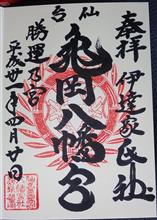 奉拝
伊達家氏神社
仙台
亀岡八幡宮
勝運乃宮
平成卅一年四月廿日